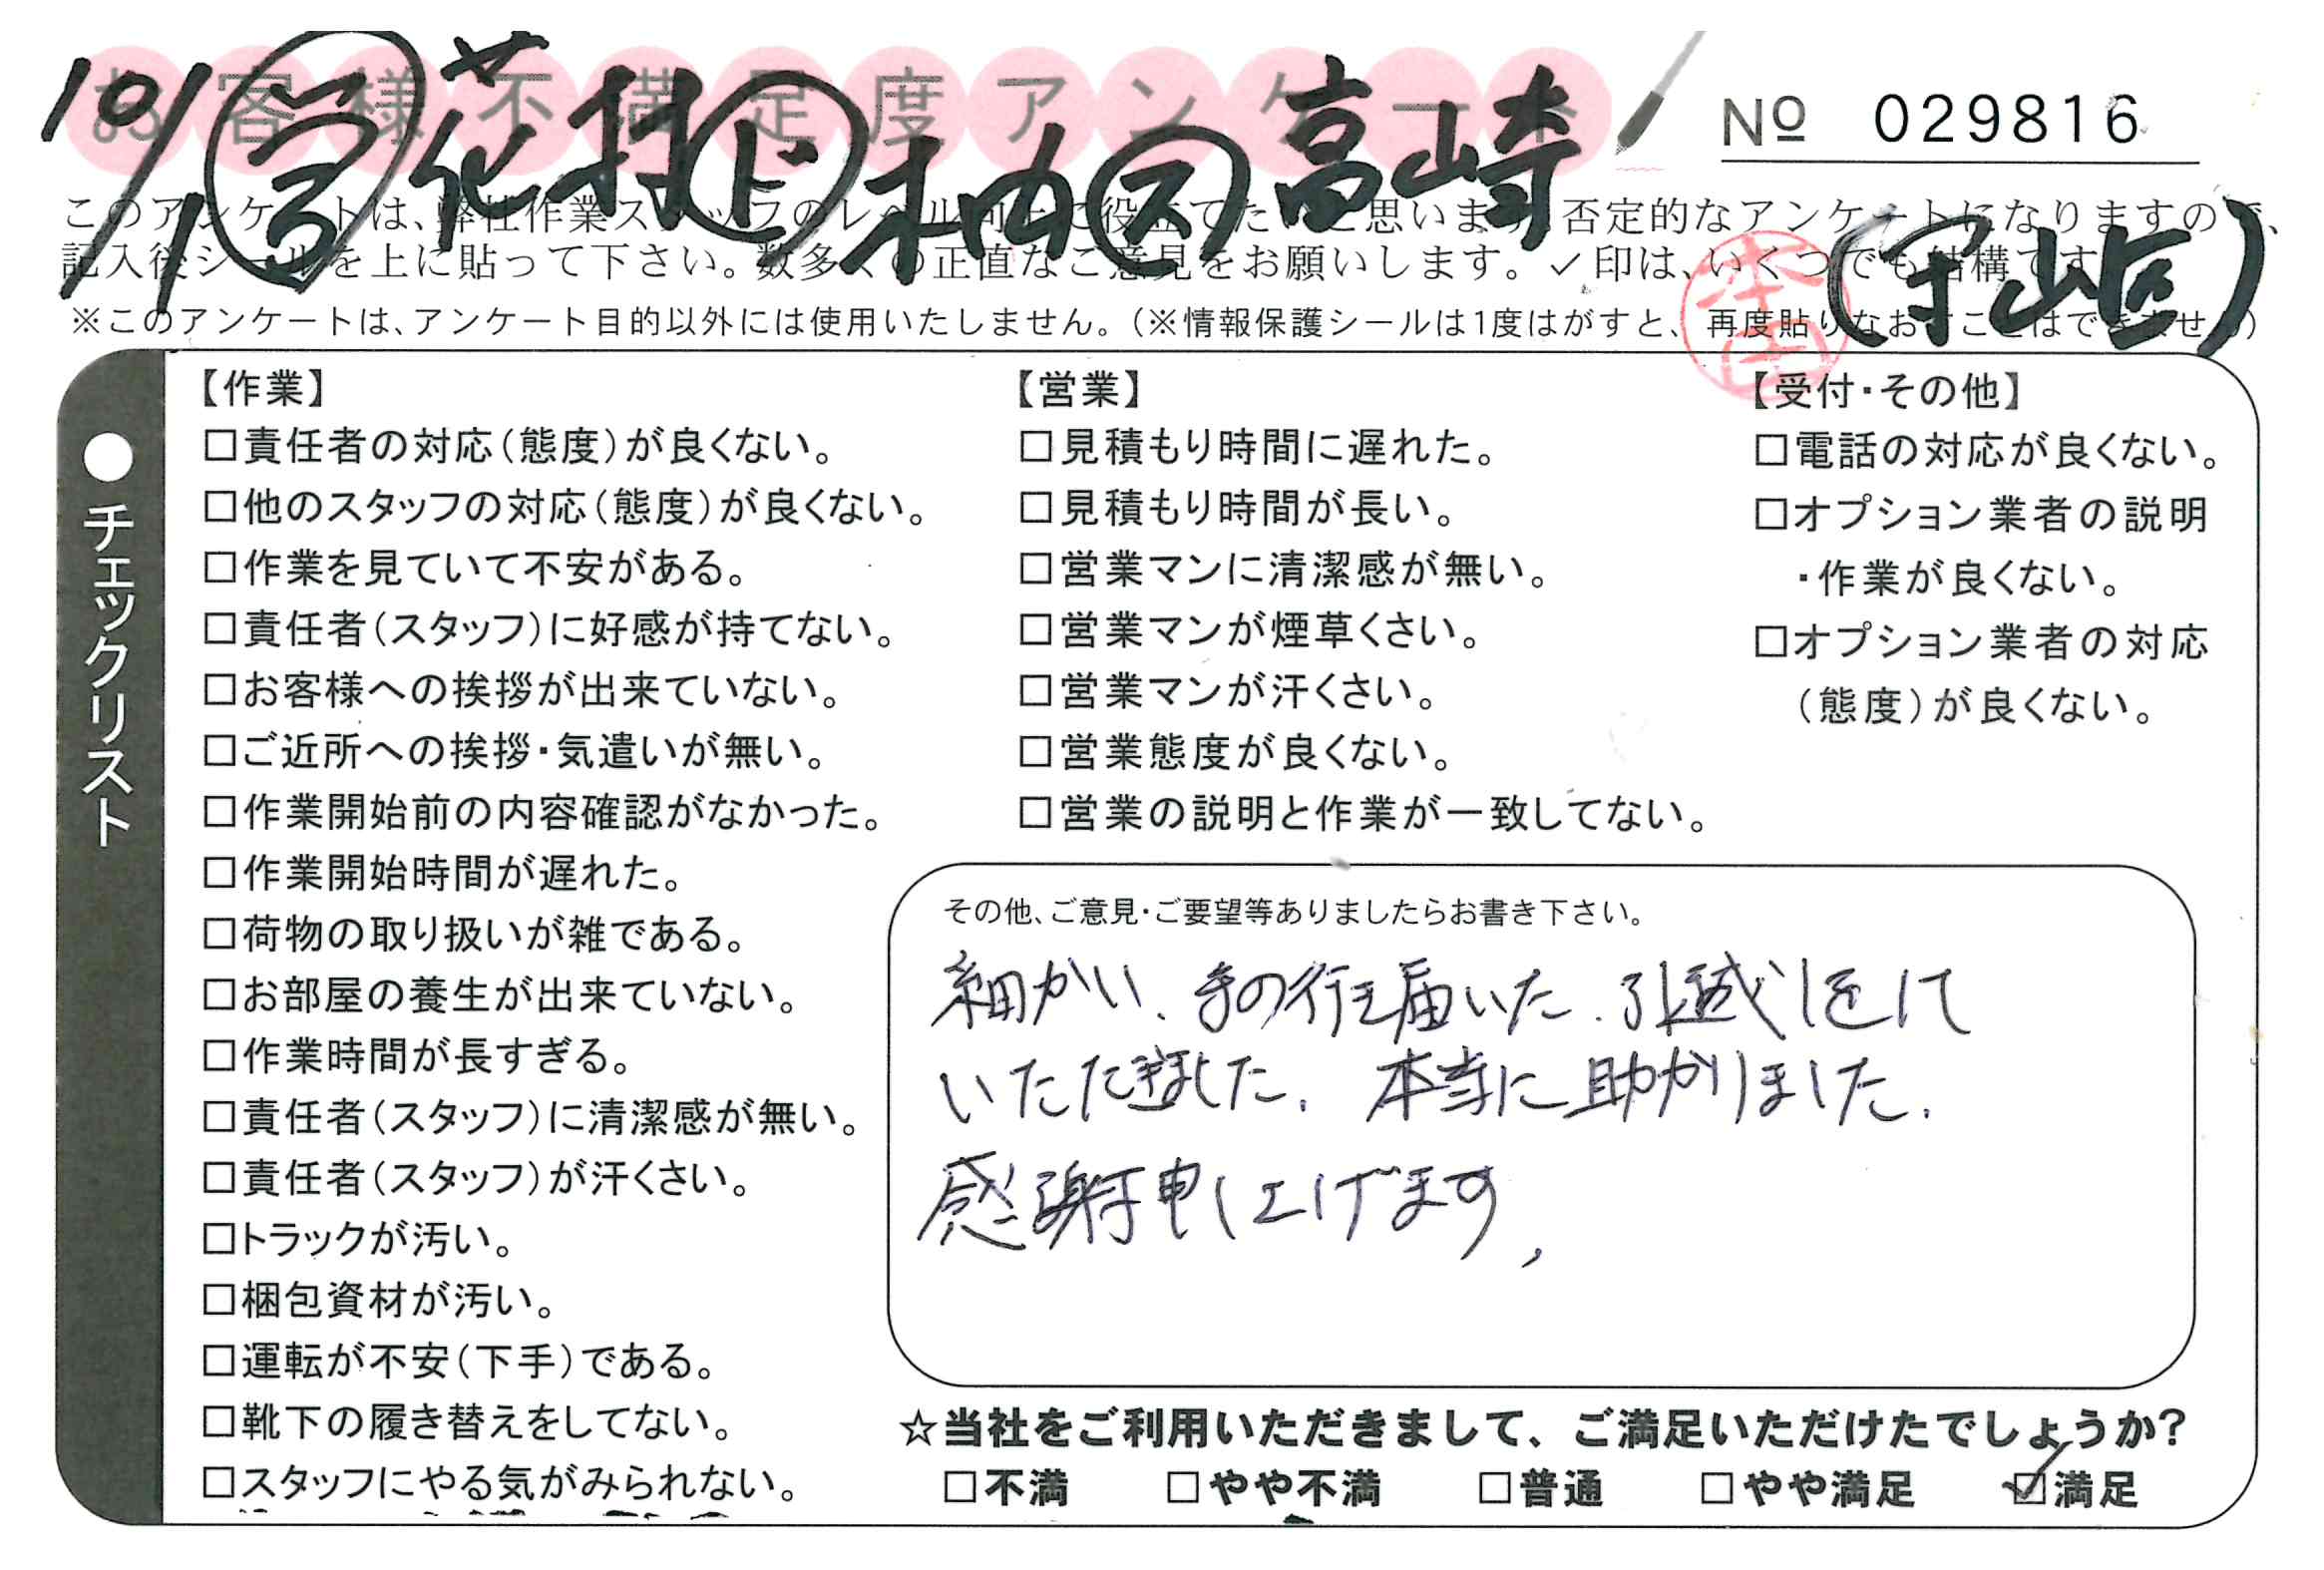 お客様不満足度アンケート
№ 029816
10/1 営 花村 上 柚 ス 高崎
(守山区)
このアンケートは、弊社作業スタッフのレベル向上に役立てたいと思います。否定的なアンケートになりますので、
記入後シールを上に貼って下さい。数多くの正直なご意見をお願いします。✓印は、いくつでも結構です。
※このアンケートは、アンケート目的以外には使用いたしません。(※情報保護シールは1度はがすと、再度貼りなおすことはできません。)
●チェックリスト
【作業】
□責任者の対応(態度)が良くない。
□他のスタッフの対応(態度)が良くない。
□作業を見ていて不安がある。
□責任者(スタッフ)に好感が持てない。
□お客様への挨拶が出来ていない。
□ご近所への挨拶・気遣いが無い。
□作業開始前の内容確認がなかった。
□作業開始時間が遅れた。
□荷物の取り扱いが雑である。
□お部屋の養生が出来ていない。
□作業時間が長すぎる。
□責任者(スタッフ)に清潔感が無い。
□責任者(スタッフ)が汗くさい。
□トラックが汚い。
□梱包資材が汚い。
□運転が不安(下手)である。
□靴下の履き替えをしてない。
□スタッフにやる気がみられない。
【営業】
□見積もり時間に遅れた。
□見積もり時間が長い。
□営業マンに清潔感が無い。
□営業マンが煙草くさい。
□営業マンが汗くさい。
□営業態度が良くない。
□営業の説明と作業が一致してない。
【受付・その他】
□電話の対応が良くない。
□オプション業者の説明
・作業が良くない。
□オプション業者の対応
(態度)が良くない。
その他、ご意見・ご要望等ありましたらお書き下さい。
細かい、手の行き届いた、引越しをして
いただきました。本当に助かりました。
感謝申し上げます、
☆当社をご利用いただきまして、ご満足いただけたでしょうか?
□不満 □やや不満 □普通 □やや満足 ☑満足